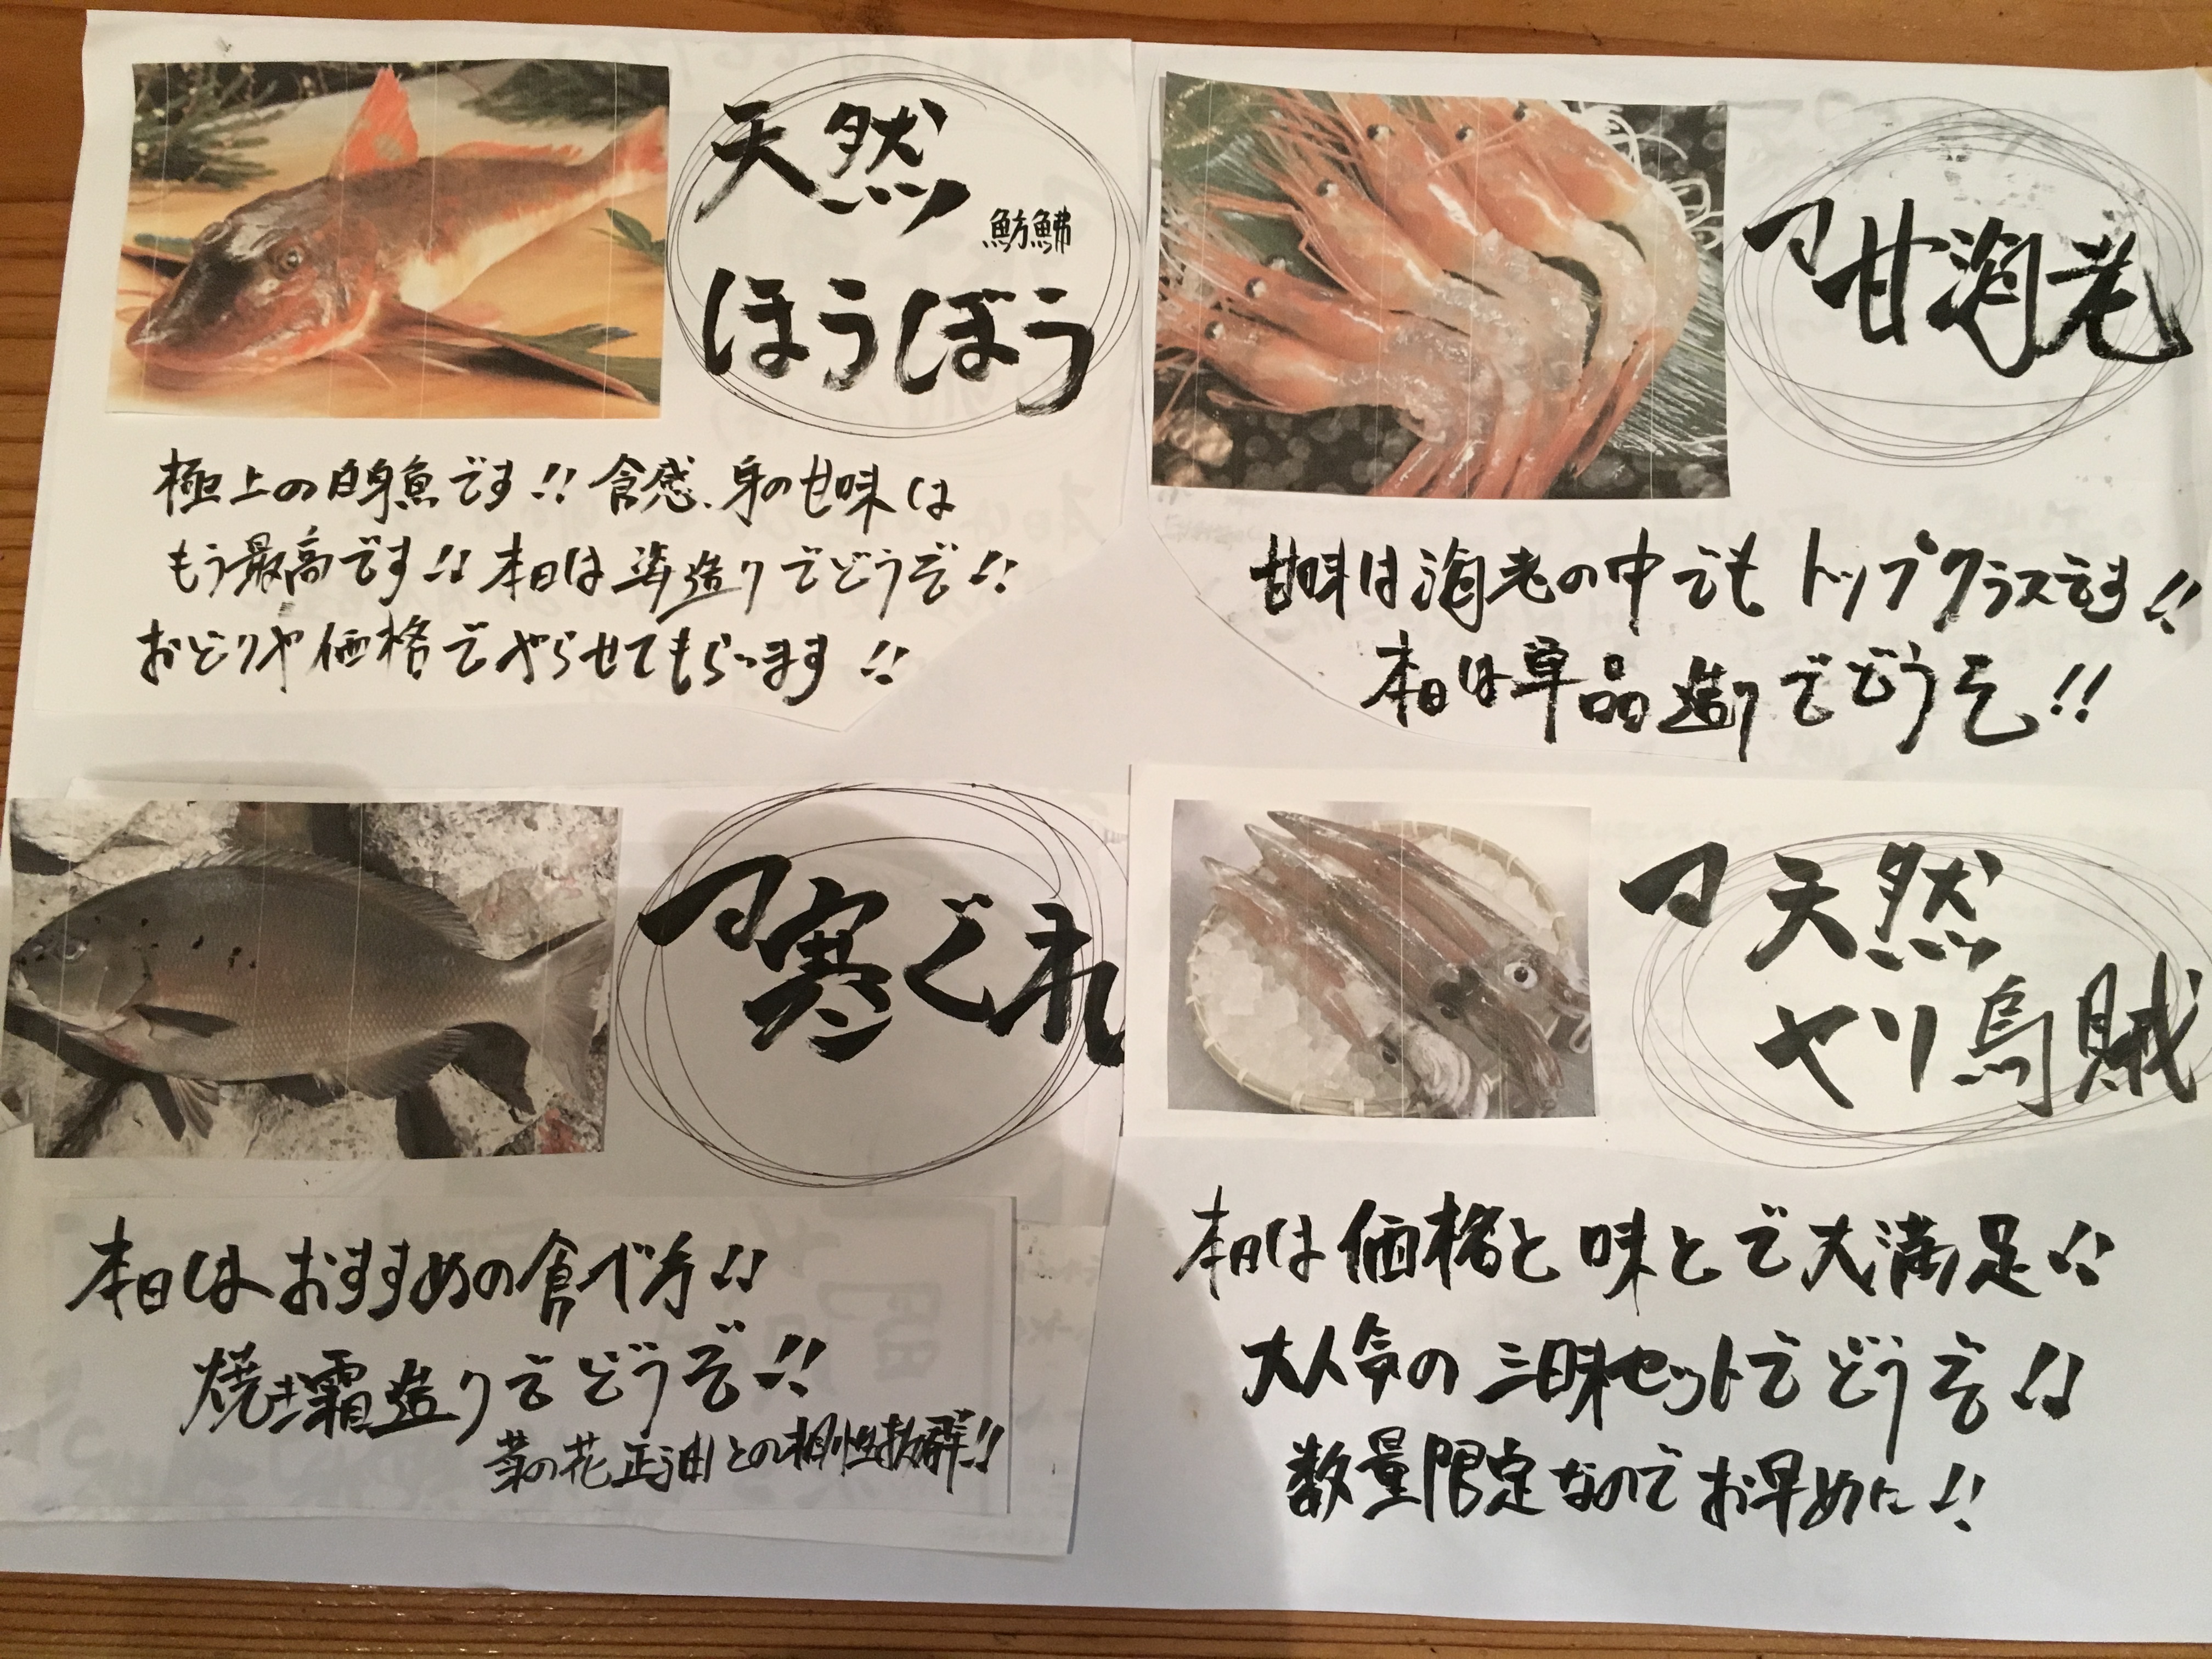 天然
魴鮄
ほうぼう
極上の白身魚です!! 食感、身の甘味は
もう最高です!! 本日は造りでどうぞ!!
おどりや価格でやらせてもらいます!!
甘海老
甘味は海老の中でもトップクラスです!!
本日は単品造りでどうぞ!!
寒ぐれ
本日はおすすめの食べ方!!
焼き霜造りでどうぞ!!
菜の花正油との相性抜群!!
天然
ヤリ烏賊
本日は価格と味とで大満足!!
大人気の三昧セットでどうぞ!!
数量限定なのでお早めに!!